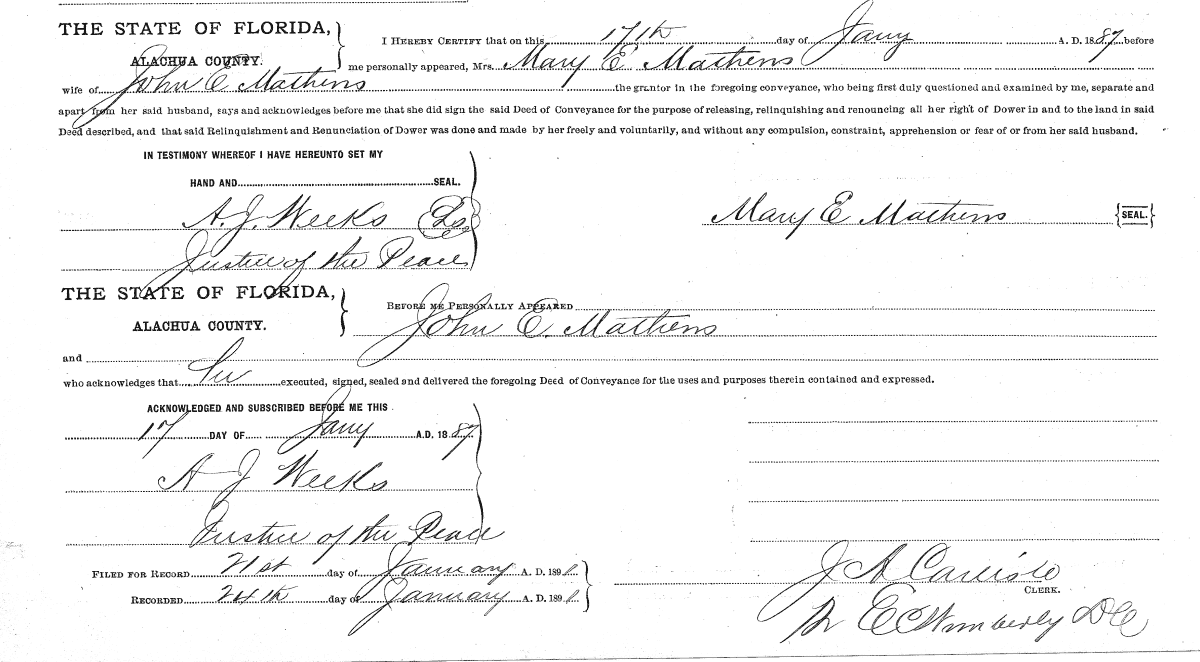 THE STATE OF FLORIDA,
ALACHUA COUNTY.
I HEREBY CERTIFY that on this 17th day of Jany A. D. 1887 before
me personally appeared, Mrs. Mary E Mathews
wife of John E Mathews the grantor in the foregoing conveyance, who being first duly questioned and examined by me, separate and
apart from her said husband, says and acknowledges before me that she did sign the said Deed of Conveyance for the purpose of releasing, relinquishing and renouncing all her right of Dower in and to the land in said
Deed described, and that said Relinquishment and Renunciation of Dower was done and made by her freely and voluntarily, and without any compulsion, constraint, apprehension or fear of or from her said husband.
IN TESTIMONY WHEREOF I HAVE HEREUNTO SET MY
HAND AND SEAL.
A. J. Weeks Ls
Mary E Mathews {SEAL.}
Justice of the Peace
THE STATE OF FLORIDA,
ALACHUA COUNTY.
BEFORE ME PERSONALLY APPEARED
John E. Mathews
and
who acknowledges that executed, signed, sealed and delivered the foregoing Deed of Conveyance for the uses and purposes therein contained and expressed.
ACKNOWLEDGED AND SUBSCRIBED BEFORE ME THIS
17 DAY OF Jany A.D. 1887
A J Weeks
Justice of the Peace
FILED FOR RECORD 21st day of January A. D. 1891
RECORDED 24th day of January A. D. 1891
J A Carlisle
CLERK.
E C Wimberly DC